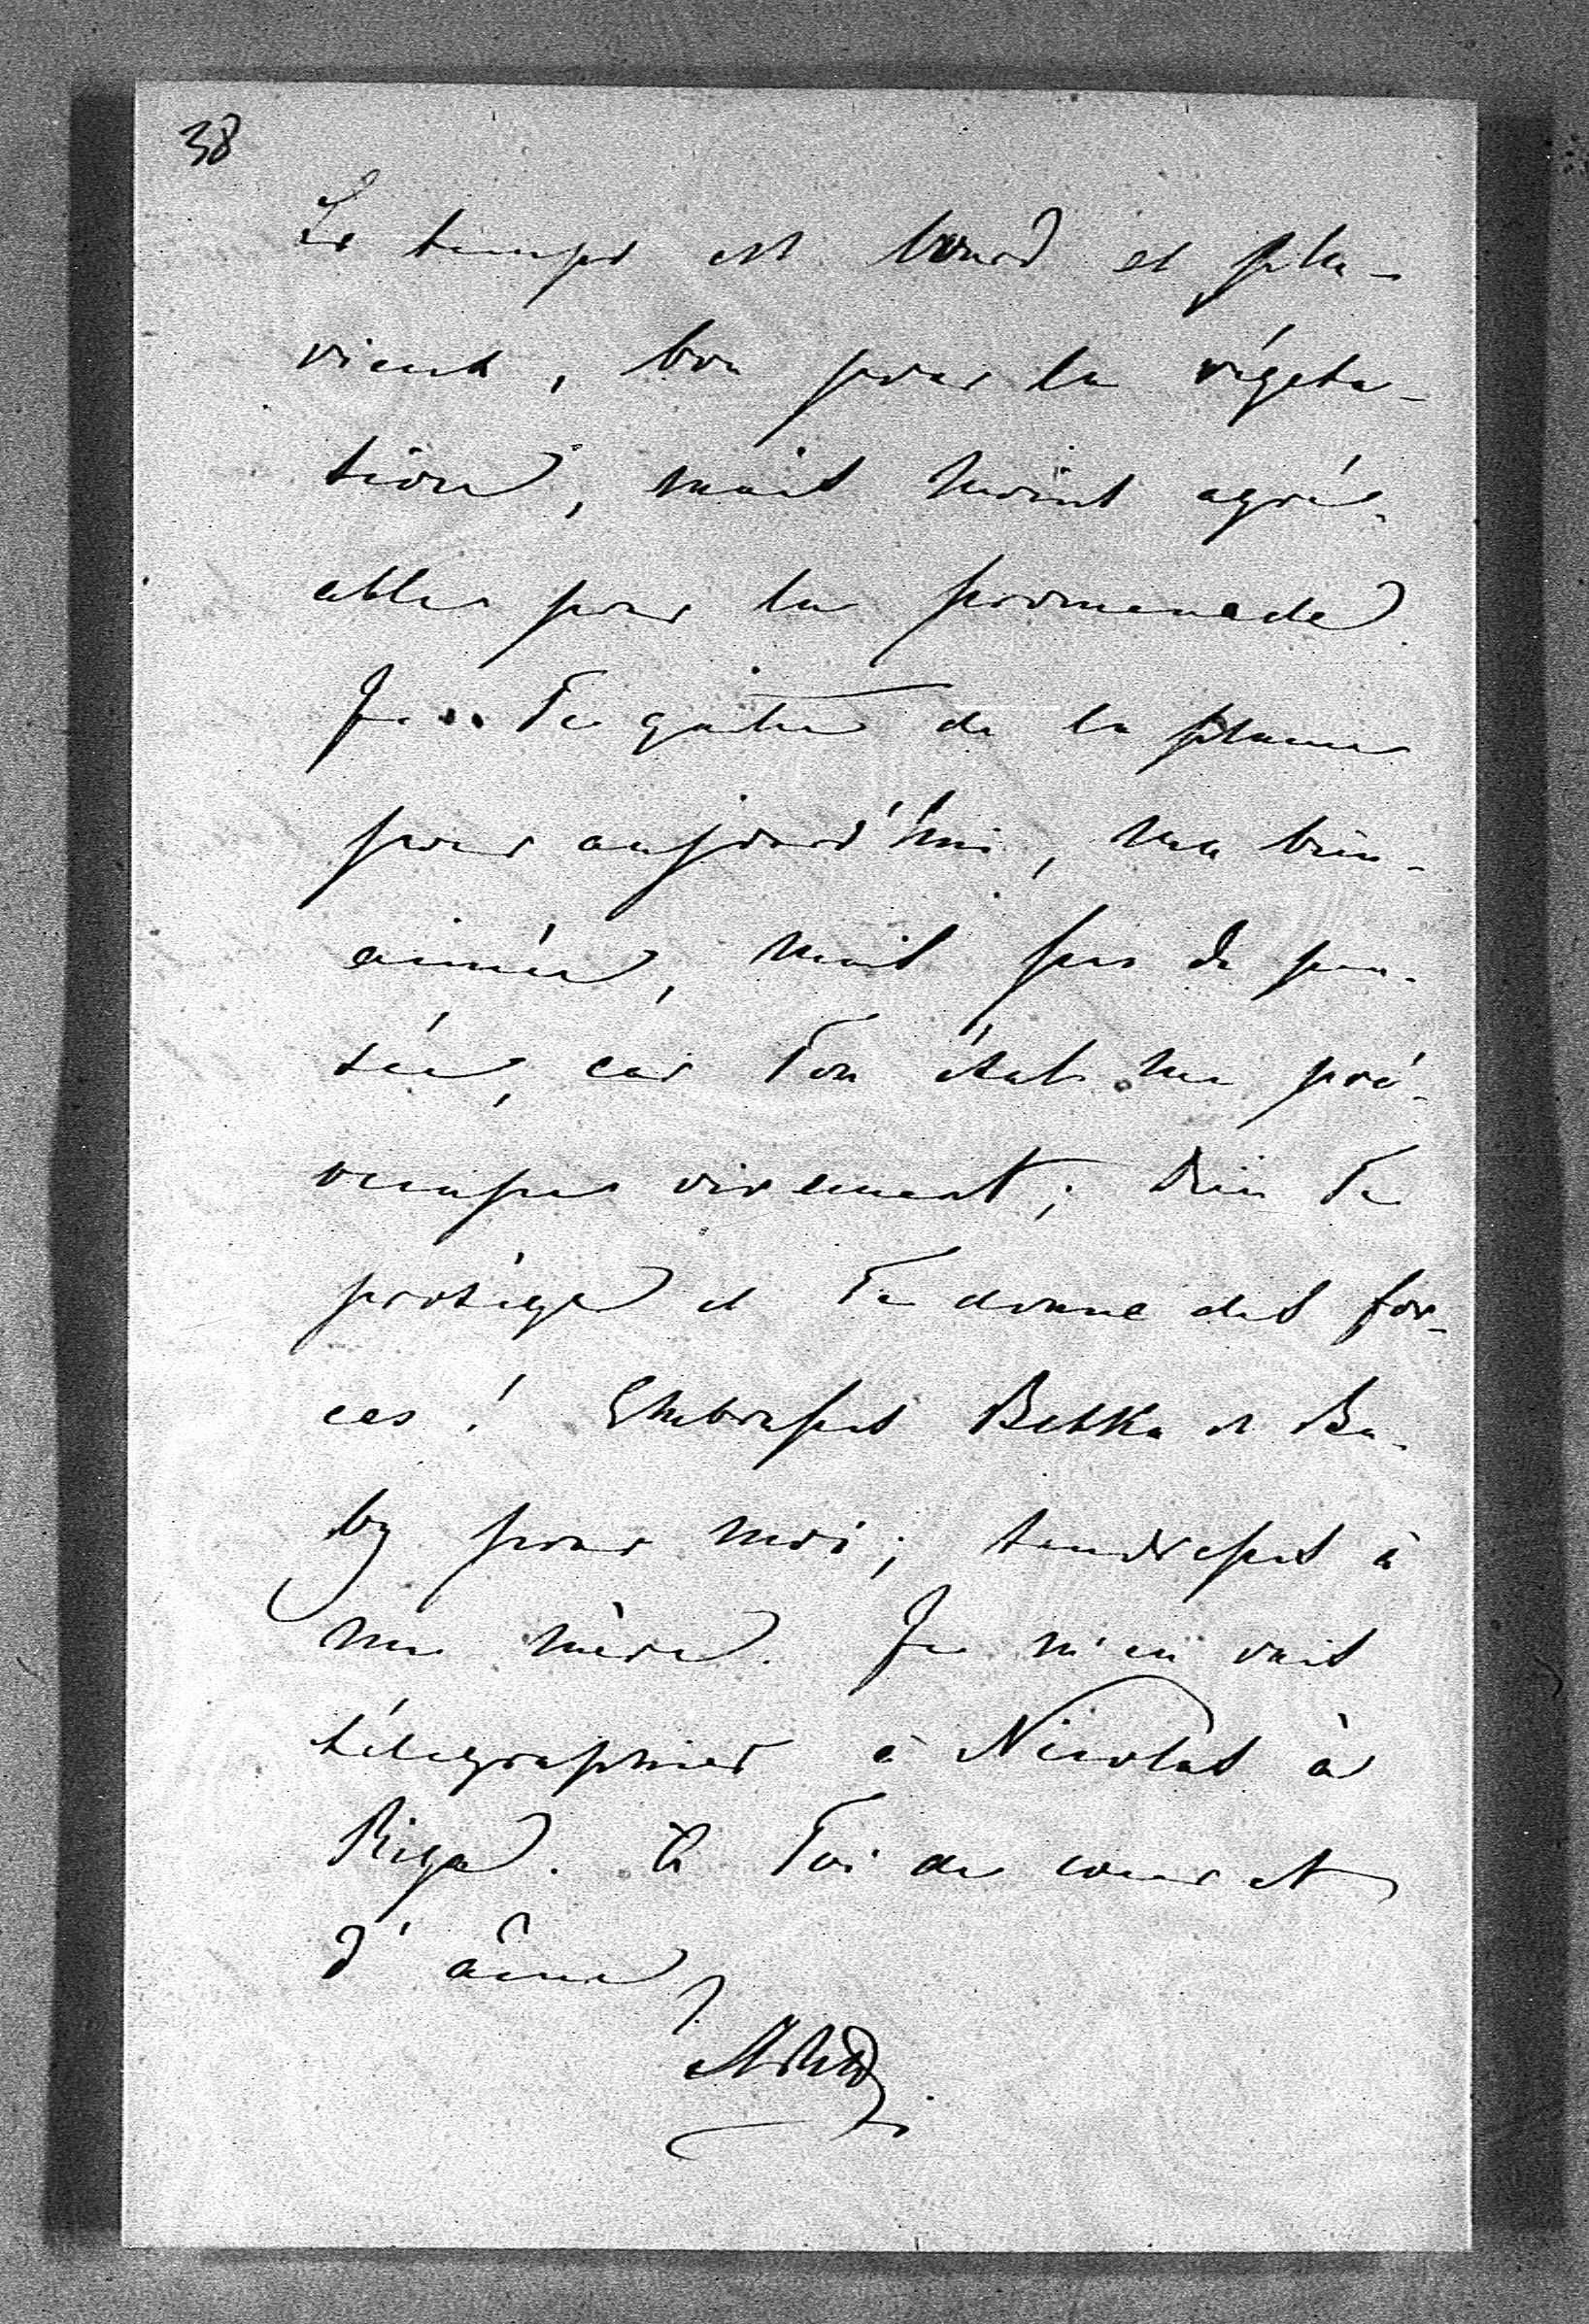 38
Le temps est lourd et plu-
vieux, bon pour la végéta-
tion, mais moins agré-
able pour la promenade.
Je Te quitte de la plume
pour aujourd'hui, ma bien-
aimée, mais pas de pen-
sée, car Ton état me pré-
occupe vivement; Dieu Te
protège et Te donne des for-
ces! Embrasses Bebka et Ba-
by pour moi; tendresses à
ma mère. Je m'en vais
télégraphier à Nicolas à
Riga. A Toi de cœur et
d'âme,